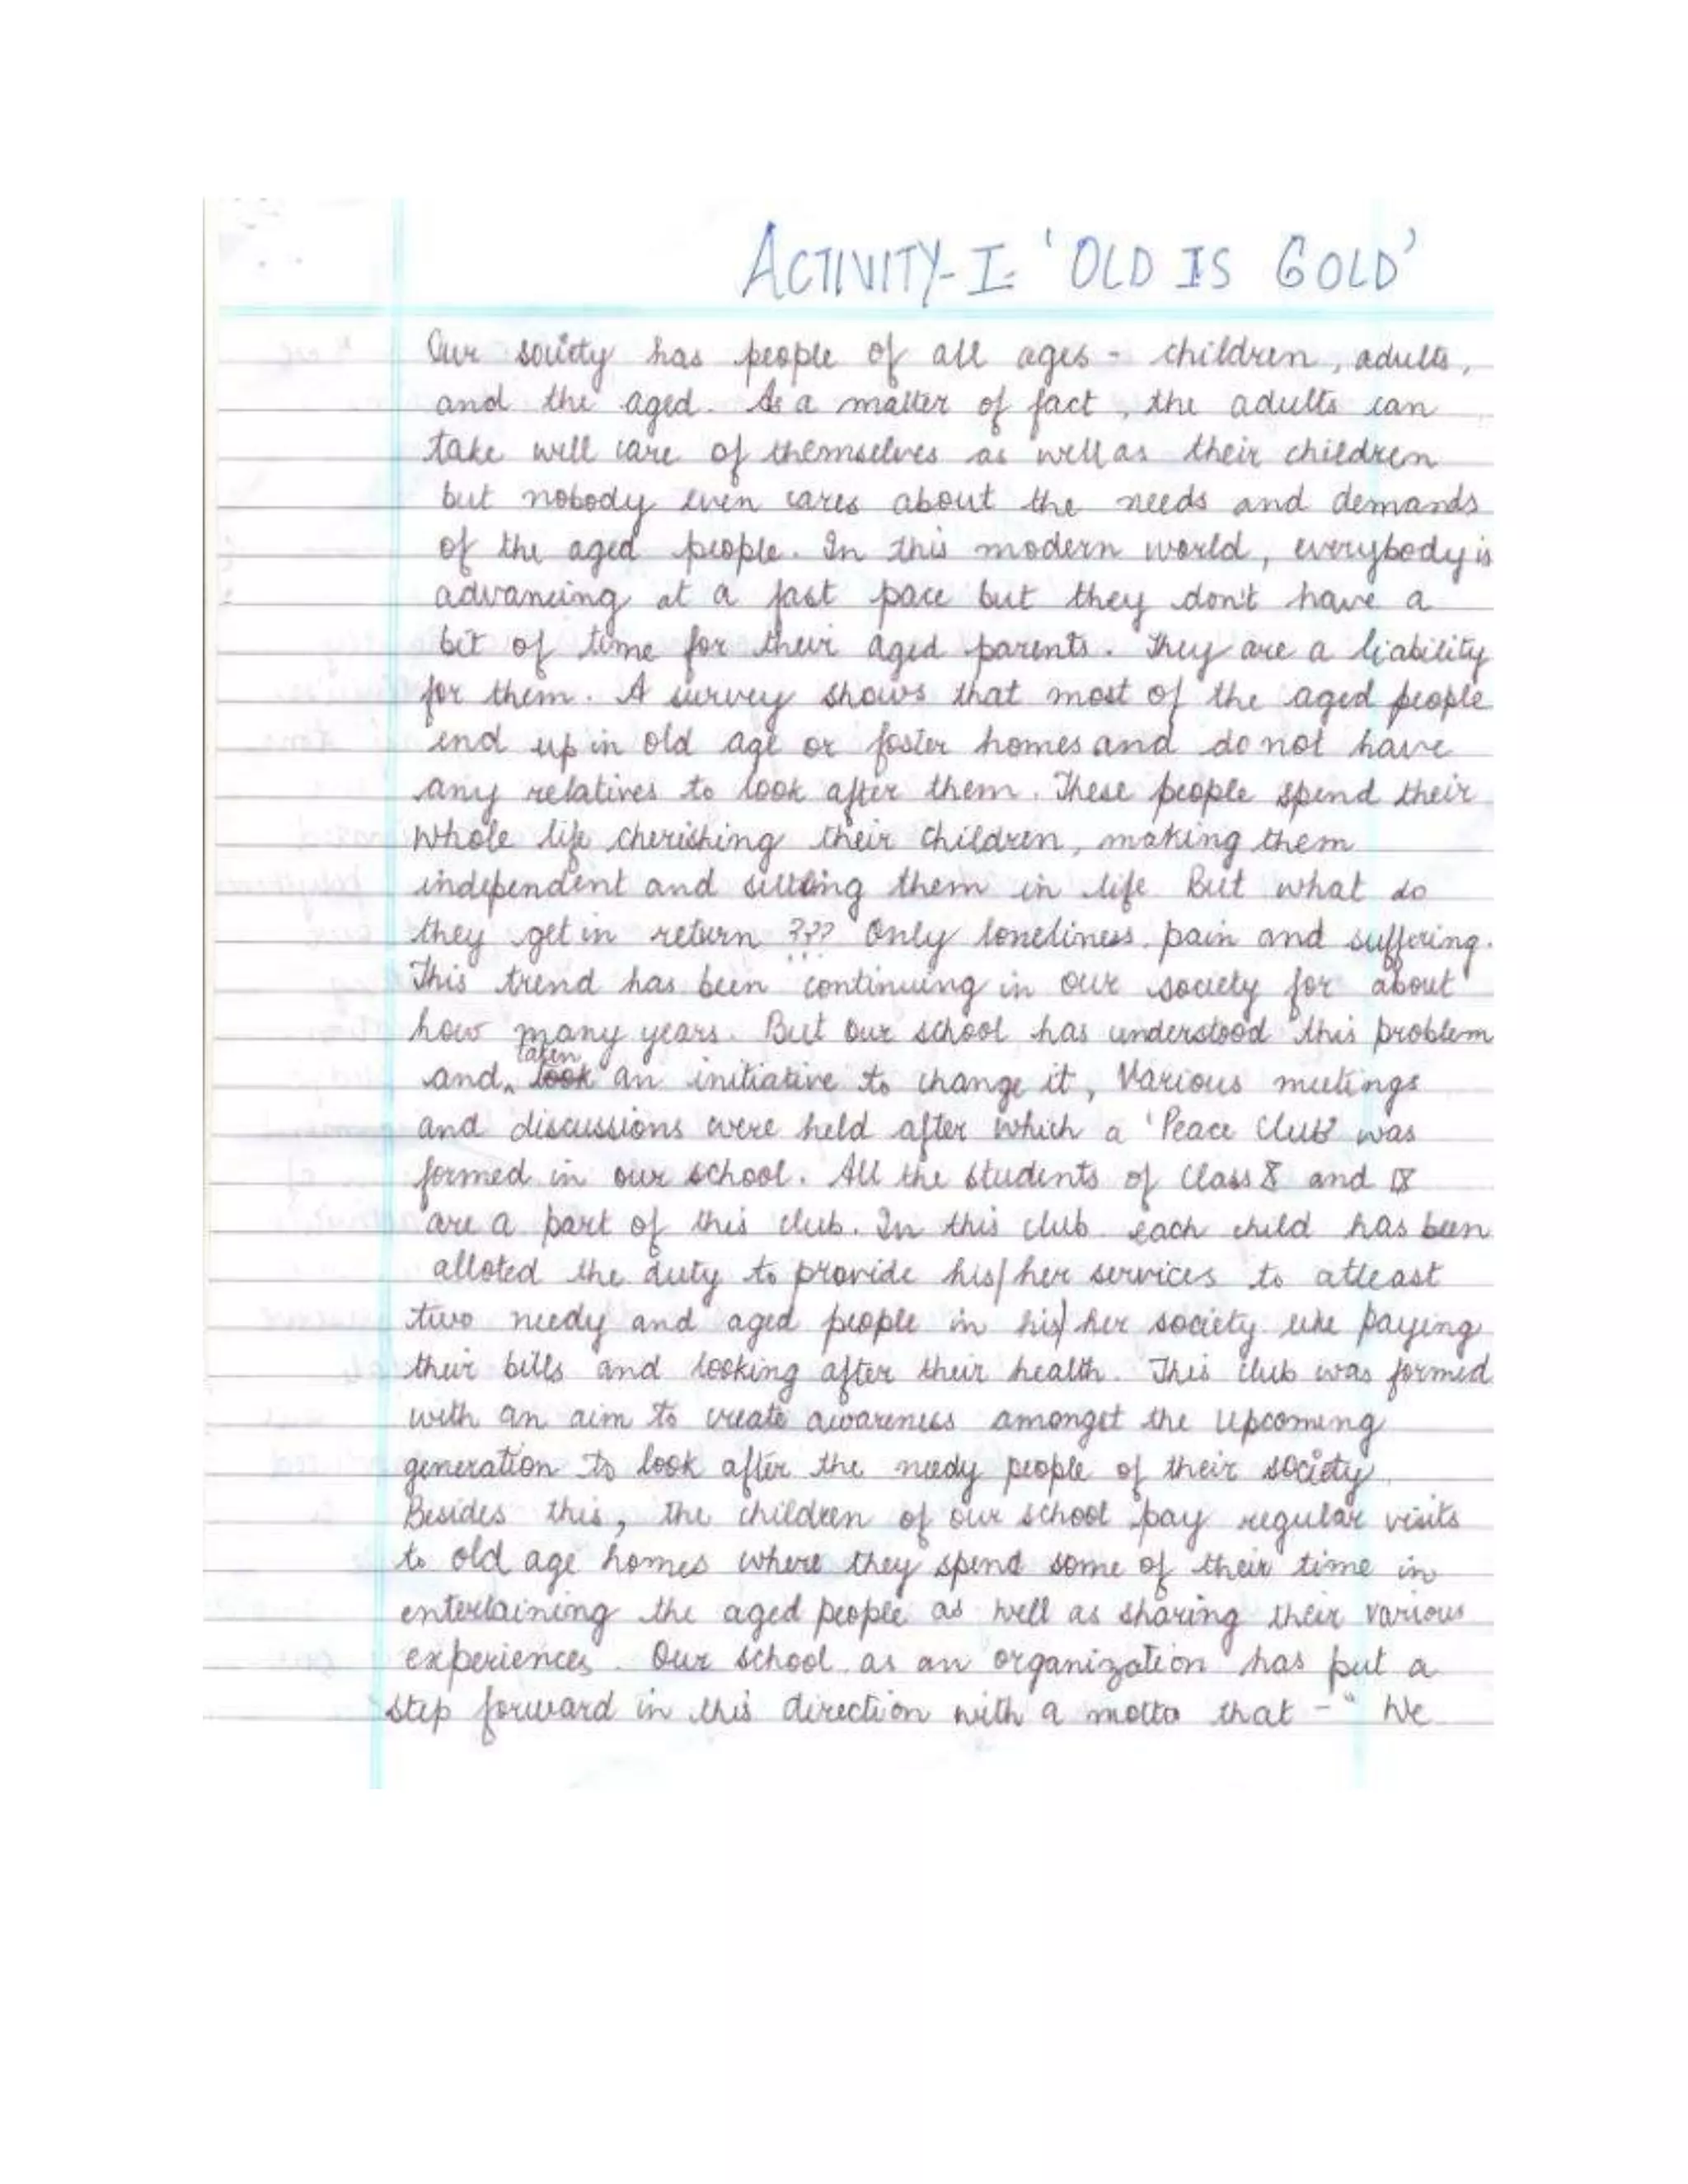 ACTIVITY-I: 'OLD IS GOLD'
Our society has people of all ages - children, adults,
and the aged. As a matter of fact, the adults can
take will care of themselves as well as their children
but nobody even cares about the needs and demands
of the aged people. In this modern world, everybody is
advancing at a fast pace but they don't have a
bit of time for their aged parents. They are a liability
for them. A survey shows that most of the aged people
end up in old age or foster homes and do not have
any relatives to look after them. These people spend their
whole life cherishing their children, making them
independent and setting them in life. But what do
they get in return ??? Only loneliness, pain and suffering.
This trend has been continuing in our society for about
how many years. But our school has understood this problem
taken
and, took an initiative to change it, Various meetings
and discussions were held after which a 'Peace Club' was
formed in our school. All the students of Class X and IX
are a part of this club. In this club each child has been
alloted the duty to provide his/her services to atleast
two needy and aged people in his/her society like paying
their bills and looking after their health. This club was formed
with an aim to create awareness amongst the upcoming
generation to look after the needy people of their society.
Besides this, the children of our school pay regular visits
to old age homes where they spend some of their time in
entertaining the aged people as well as sharing their various
experiences. Our school as an organization has put a
step forward in this direction with a motto that - " We